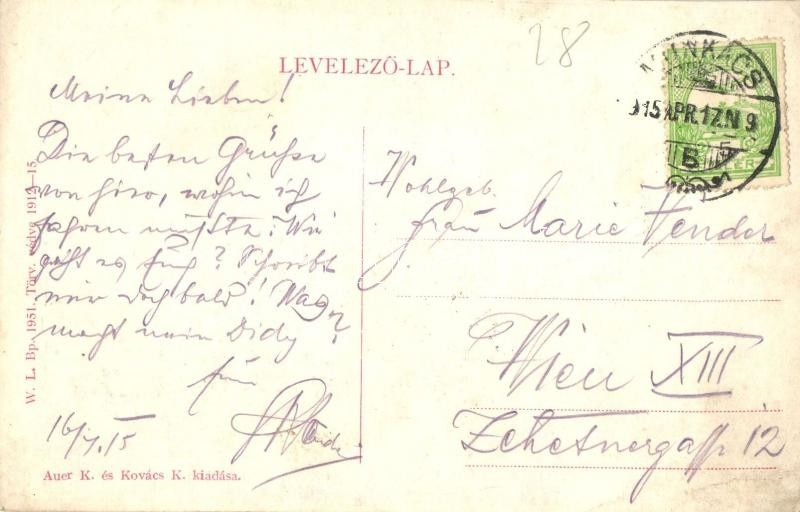 28
LEVELEZŐ-LAP.
MUNKÁCS
915 APR. 17. N 9
B
Meine Lieben!
Die besten Grüße
von hier, wohin ich
fahren mußte. Wie
geht es Euch? Schreibt
mir doch bald! Was
macht mein Didy?
Euer
16/4.15
Wohlgeb.
Frau Marie Vendor
Wien XIII
Zehetnergasse 12
W. L. Bp. 1951. Törv. védve 1912—15.
Auer K. és Kovács K. kiadása.